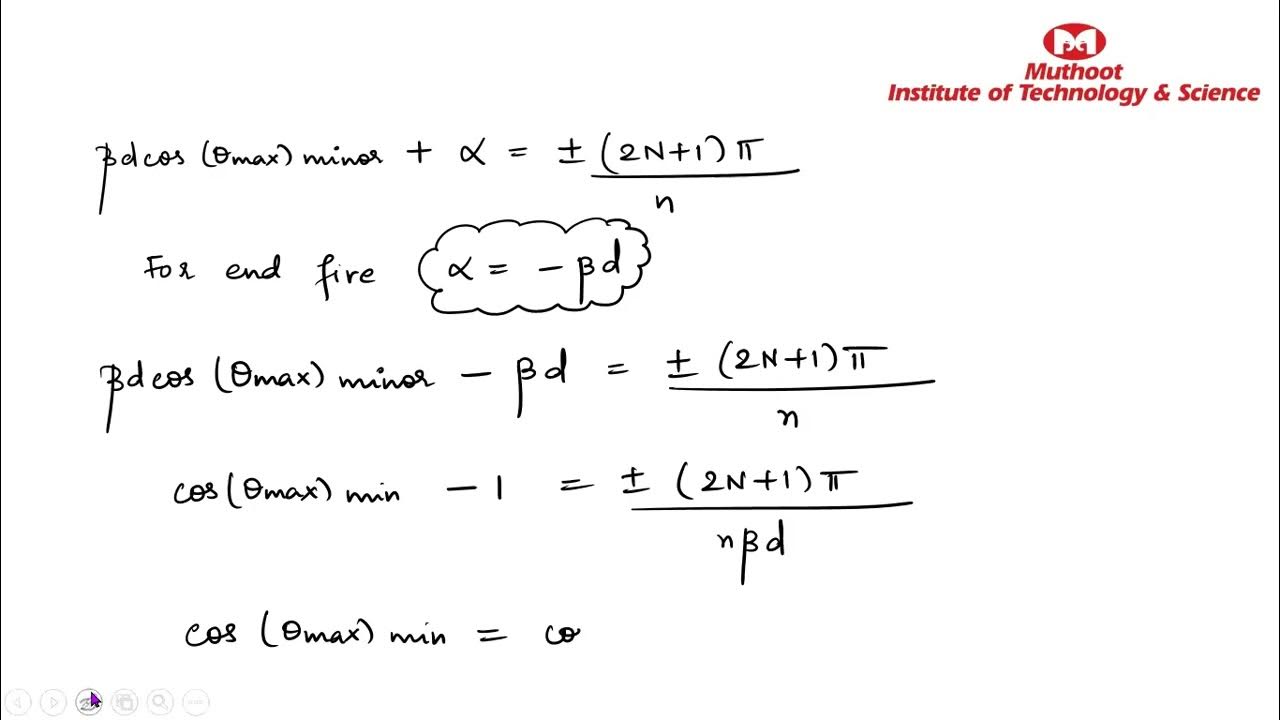 Muthoot
Institute of Technology & Science
βd cos (θmax) minor + α = ± (2N+1) π / n
For end fire α = - βd
βd cos (θmax) minor - βd = ± (2N+1) π / n
cos (θmax) min - 1 = ± (2N+1) π / nβd
cos (θmax) min = co